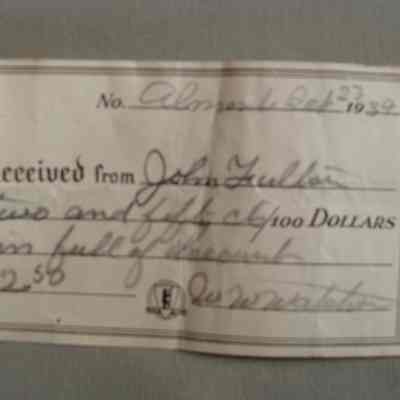 No. Almont Oct 27 1939
eceived from John Fulton
two and fifty cts/100 DOLLARS
in full of account
2.50